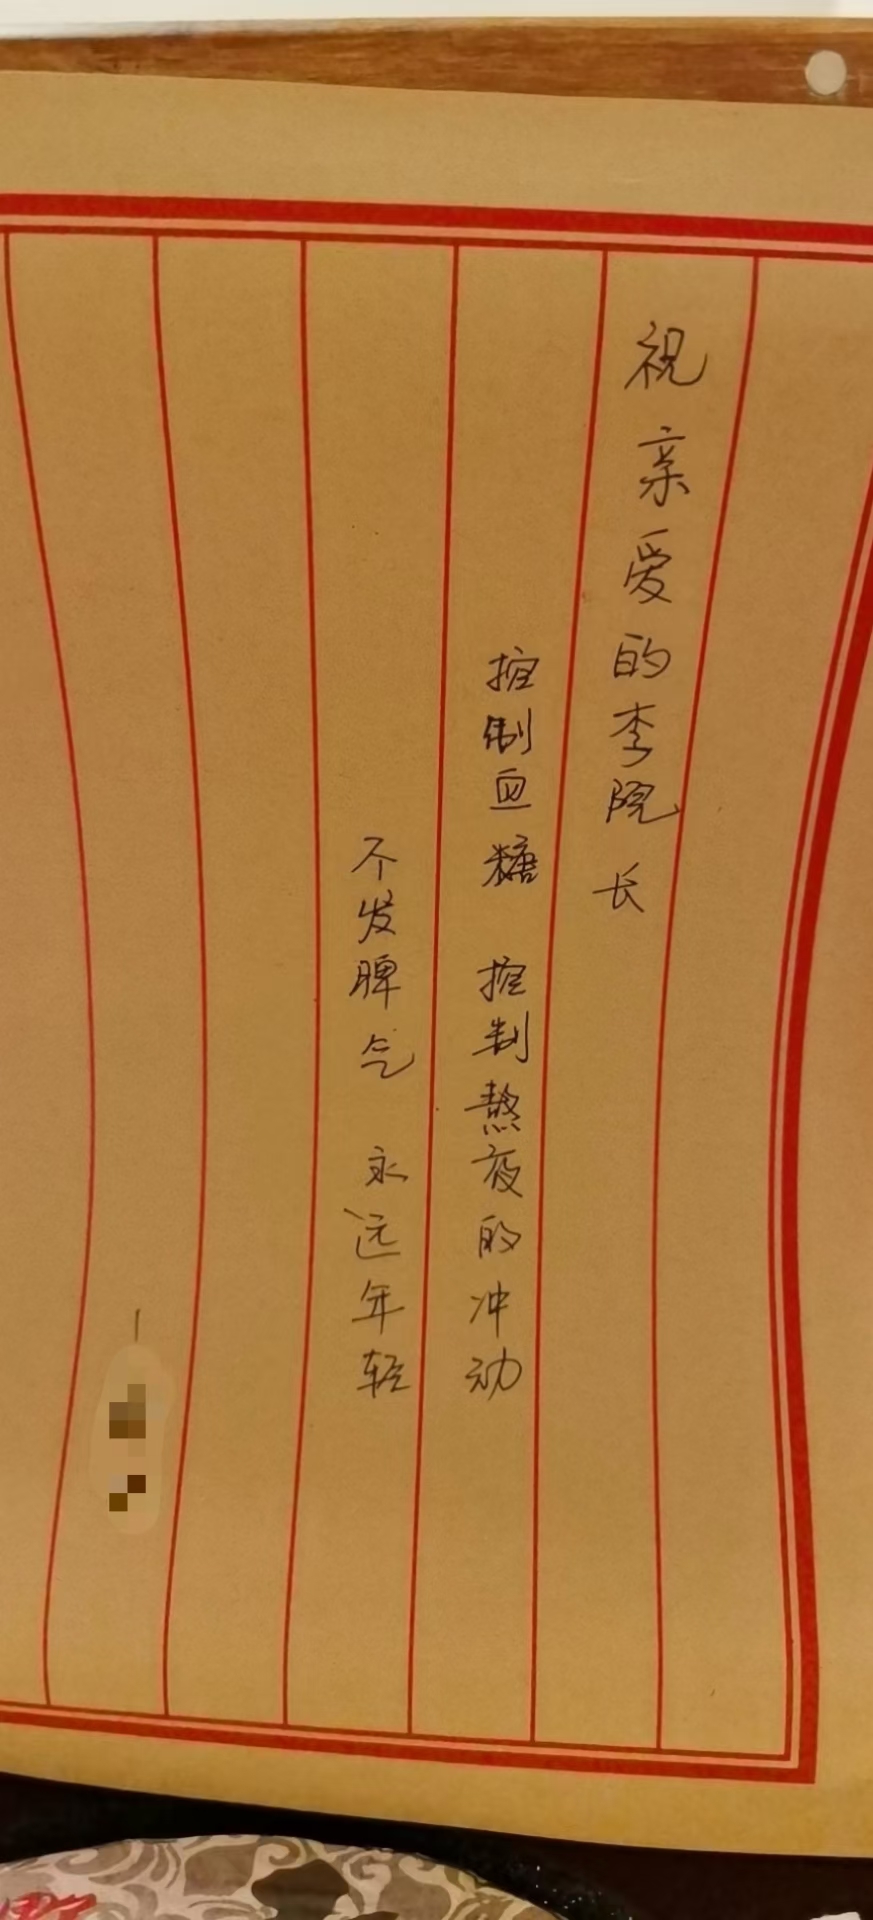 祝亲爱的李院长
控制血糖 控制熬夜的冲动
不发脾气 永远年轻